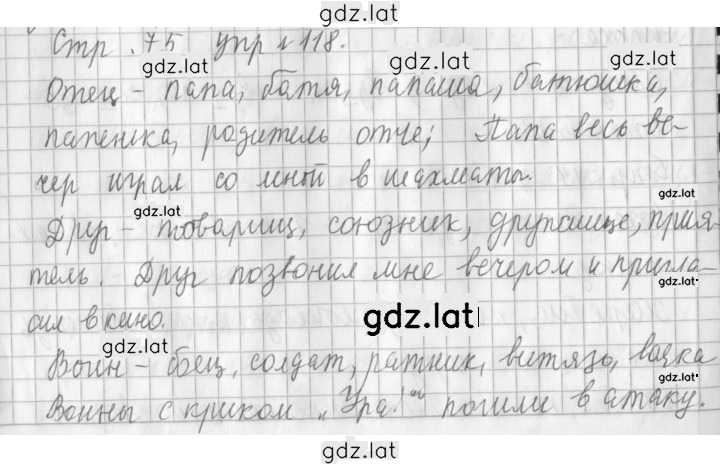 gdz.lat
Стр. 75 упр. 118.
gdz.lat gdz.lat
Отец – папа, батя, папаша, батюшка,
папенька, родитель отче; Папа весь ве-
чер играл со мной в шахматы.
gdz.lat gdz.lat
Друг – товарищ, союзник, дружище, прия-
тель. Друг позвонил мне вечером и пригла-
gdz.lat
сил в кино. gdz.lat
gdz.lat
Воин – боец, солдат, ратник, витязь, вояка
gdz.lat
Воины с криком „Ура!“ пошли в атаку.
gdz.lat